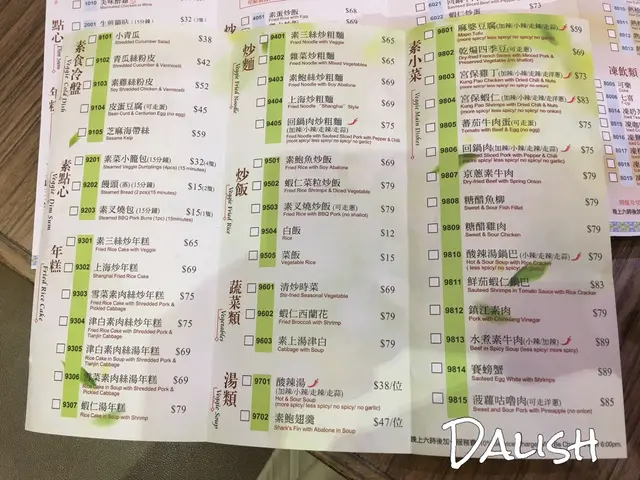 點心
素食冷盤
Veggie Cold Dish
9101 小青瓜 $38
Shredded Cucumber Salad
9102 青瓜絲粉皮 $42
Shredded Cucumber & Vermicelli
9103 素雞絲粉皮 $52
Soy Shredded Chicken & Vermicelli
9104 皮蛋豆腐(可走蛋) $45
Bean Curd & Centurion Egg (no egg)
9105 芝麻海帶絲 $59
Sesame Kelp
素點心
Veggie Dim Sum
9201 素菜小籠包(15分鐘) $32(4隻)
Steamed Veggie Dumplings (4pcs) (15 minutes)
9202 饅頭(蒸)(15分鐘) $15(2隻)
Steamed Bread (2 pcs)(15 minutes)
9203 素叉燒包(15分鐘) $15(1隻)
Steamed BBQ Pork Buns (1pc) (15minutes)
年糕
Fried Rice Cake
9301 素三絲炒年糕 $65
Fried Rice Cake with Veggie
9302 上海炒年糕 $69
Shanghai Fried Rice Cake
9303 雪菜素肉絲炒年糕 $75
Fried Rice Cake with Shredded Pork &
Pickled Cabbage
9304 津白素肉絲炒年糕 $75
Fried Rice Cake with Shredded Pork &
Tianjin Cabbage
9305 津白素肉絲湯年糕 $69
Rice Cake in Soup with Shredded Pork &
Tianjin Cabbage
9306 雪菜素肉絲湯年糕 $69
Rice Cake in Soup with Shredded Pork &
Pickled Cabbage
9307 蝦仁湯年糕 $79
Rice Cake in Soup with Shrimp
炒麵
Veggie Fried Noodle
9401 素三絲炒粗麵 $65
Fried Noodle with Veggie
9402 雜菜炒粗麵 $65
Fried Noodle with Mixed Vegetables
9403 素鮑絲炒粗麵 $69
Fried Noodle with Soy Abalone
9404 上海炒粗麵 $69
Fried Noodle "Shanghai" Style
9405 回鍋肉炒粗麵 $75
(加辣/小辣/走辣/走蒜)
Fried Noodle with Sauteed Sliced Pork with Pepper & Chili
(more spicy/ less spicy/ no spicy/ no garlic)
炒飯
Veggie Fried Rice
9501 素鮑魚炒飯 $69
Fried Rice with Soy Abalone
9502 蝦仁菜粒炒飯 $79
Fried Rice Shrimps & Diced Vegetable
9503 素叉燒炒飯(可走蔥) $79
Fried Rice with BBQ Pork (no shallot)
9504 白飯 $12
Rice
9505 菜飯 $15
Vegetable Rice
蔬菜類
Vegetables
9601 清炒時菜 $69
Stir-fried Seasonal Vegetable
9602 蝦仁西蘭花 $79
Fried Broccoli with Shrimp
9603 素上湯津白 $79
Cabbage with Soup
湯類
Veggie Soup
9701 酸辣湯 $38/位
(加辣/小辣/走辣/走蒜)
Hot & Sour Soup
(more spicy/ less spicy/ no spicy/ no garlic)
9702 素鮑翅羹 $47/位
Shark's Fin with Abalone in Soup
素小菜
Veggie Main Dishes
9801 麻婆豆腐(加辣/小辣/走辣/走蒜) $59
Mapo Tofu
(more spicy/ less spicy/ no spicy/ no garlic)
9802 乾煸四季豆(可走蔥) $69
9803 宮保雞丁(加辣/小辣/走辣/走蒜) $73
Kung Pao Chicken with Dried Chili & Nuts
(more spicy/ less spicy/ no spicy/ no garlic)
9804 宮保蝦仁(加辣/小辣/走辣/走蒜) $83
Kung Pao Shrimps with Dried Chili & Nuts
(more spicy/ less spicy/ no spicy/ no garlic)
9805 蕃茄牛肉蛋(可走蛋) $75
Tomato with Beef & Egg (no egg)
9806 回鍋肉(加辣/小辣/走辣/走蒜) $75
Sauteed Sliced Pork with Pepper & Chili
(more spicy/ less spicy/ no spicy/ no garlic)
9807 京蔥素牛肉 $79
Dry-fried Beef with Spring Onion
9808 糖醋魚柳 $79
Sweet & Sour Fish Fillet
9809 糖醋雞肉 $79
Sweet & Sour Chicken
9810 酸辣湯鍋巴(小辣/走辣) $79
Hot & Sour Soup with Rice Cracker
(less spicy/ no spicy)
9811 鮮茄蝦仁鍋巴 $83
Sauteed Shrimps in Tomato Sauce with Rice Cracker
9812 鎮江素肉 $79
Pork with Chinkiang Vinegar
9813 水煮素牛肉(小辣/加辣) $79
Beef in Spicy Soup (less spicy/ more spicy)
9814 賽螃蟹 $89
Sauteed Egg White with Shrimps
9815 菠蘿咕嚕肉(可走洋蔥) $85
Sweet and Sour Pork with Pineapple (no onion)
DALISH